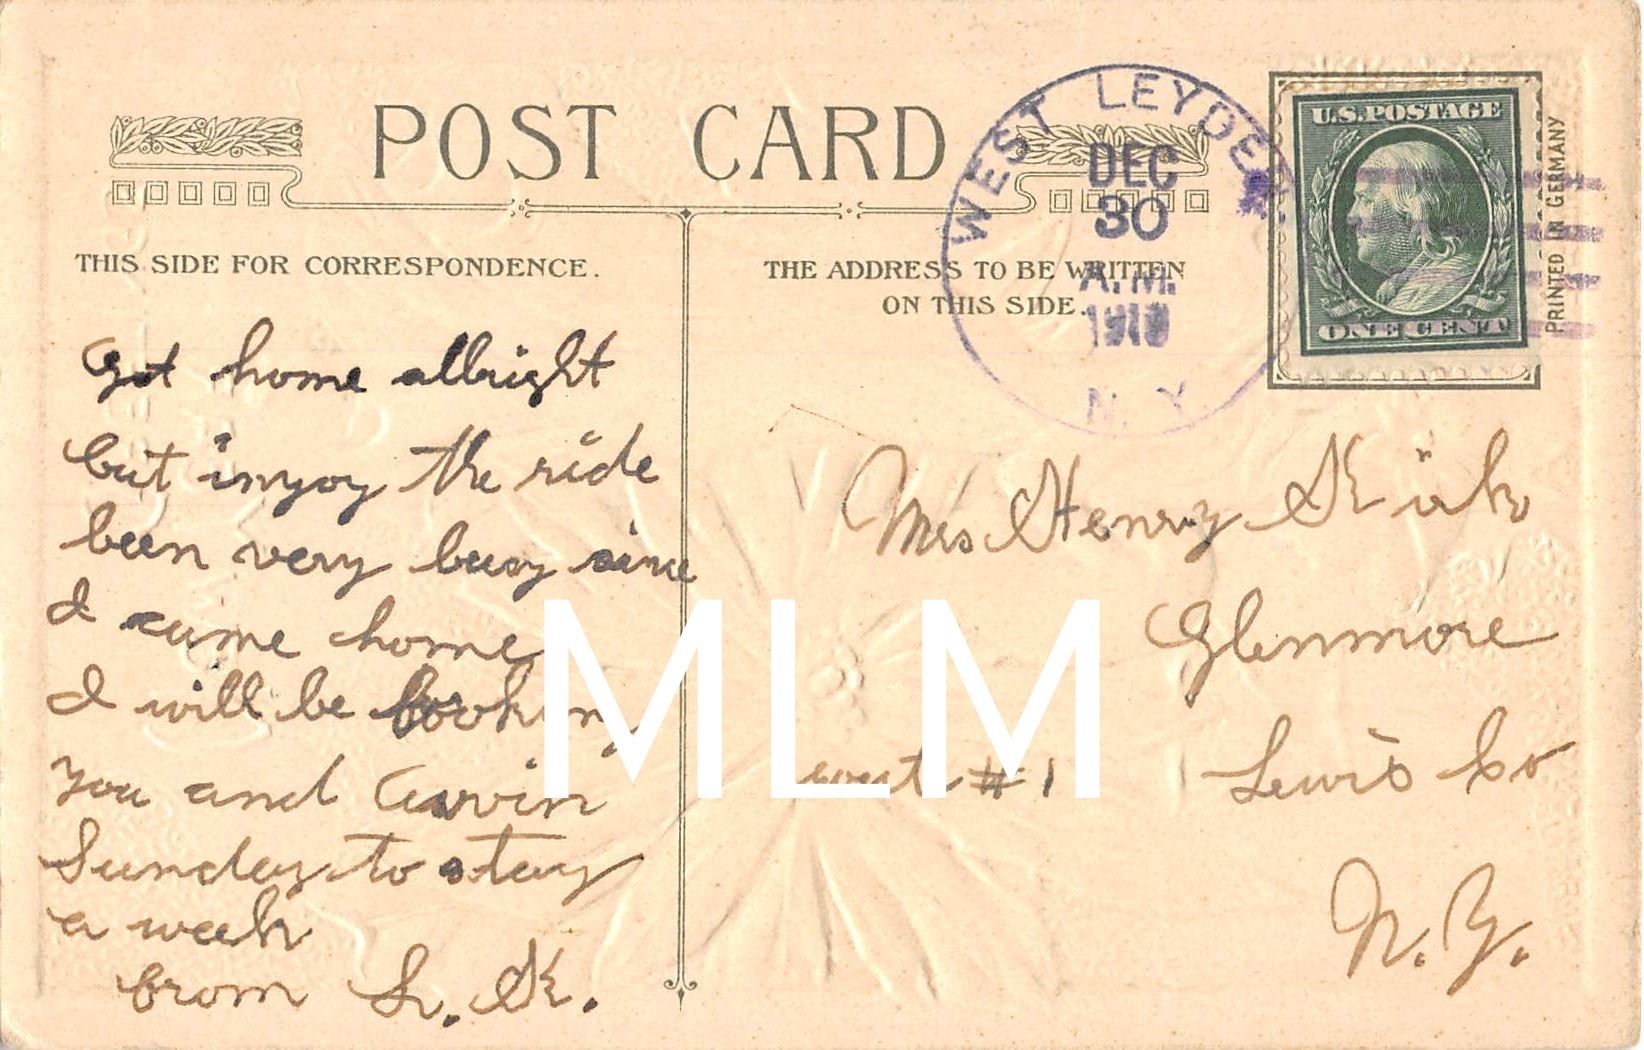 POST CARD
THIS SIDE FOR CORRESPONDENCE.
THE ADDRESS TO BE WRITTEN
ON THIS SIDE.
WEST LEYDEN
DEC
30
A.M.
N.Y.
U.S. POSTAGE
ONE CENT
PRINTED IN GERMANY
Got home allright
but injoy the ride
been very busy since
I came home
I will be looking
you and
Sunday to stay
a week
from L. K.
Mrs Henry
Glenmore
rout #1 Lewis Co
N. Y.
MLM